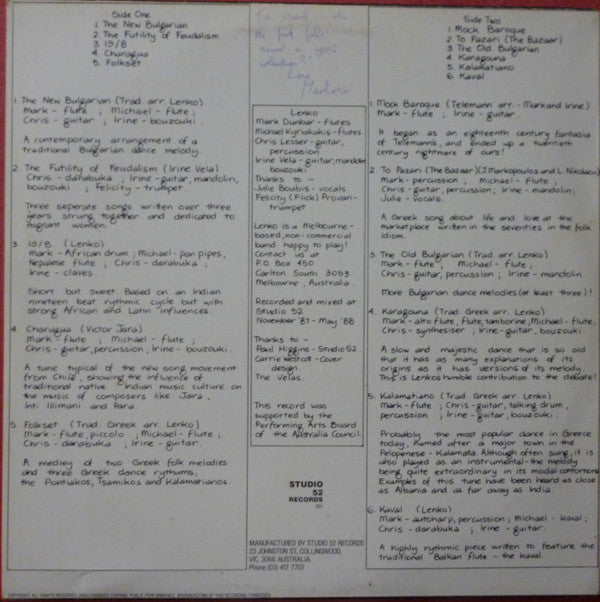 Side One
1. The New Bulgarian
2. The Futility of Feudalism
3. 19/8
4. Charagua
5. Folkset
1. The New Bulgarian (Trad. arr. Lenko)
Mark - flute ; Michael - flute ;
Chris - guitar ; Irine - bouzouki.
A contemporary arrangement of a
traditional Bulgarian dance melody.
2. The Futility of Feudalism (Irine Vela)
Chris - darabuka ; Irine - guitar, mandolin,
bouzouki ; Felicity - trumpet.
Three seperate songs written over three
years strung together and dedicated to
migrant women.
3. 19/8. (Lenko)
Mark - African drum ; Michael - pan pipes,
Nepalese flute ; Chris - darabuka ;
Irine - claves.
Short but sweet. Based on an Indian
nineteen beat rythmic cycle but with
strong African and Latin influences.
4. Charagua (Victor Jara)
Mark - flute ; Michael - flute ;
Chris - guitar, percussion ; Irine - bouzouki.
A tune typical of the new song movement
from Chile, showing the influence of
traditional native Indian music culture on
the music of composers like Jara,
Inti Illimani and Para.
5. Folkset (Trad. Greek arr. Lenko)
Mark - flute, piccolo ; Michael - flute ;
Chris - darabuka ; Irine - guitar.
A medley of two Greek folk melodies
and three Greek dance rythums,
the Pontiakos, Tsamikos and Kalamatianos.
To
the
need a good
Love
Lenko
Mark Dunbar - flutes
Michael Kyriakakis - flutes
Chris Lesser - guitar,
percussion
Irine Vela - guitar, mandolin
bouzouki
Thanks to -
Julie Boubis - vocals
Felicity (Flick) Provan -
trumpet
Lenko is a Melbourne -
based, non-commercial
band happy to play!
Contact us at
P.O. Box 450
Carlton South 3053
Melbourne, Australia.
Recorded and mixed at
Studio 52
November '87 - May '88
Thanks to -
Paul Higgins - Studio 52
Carrie - Cover
design
The Velas.
This record was
supported by the
Performing Arts Board
of the Australia Council.
STUDIO
52
RECORDS
MANUFACTURED BY STUDIO 52 RECORDS
23 JOHNSTON ST, COLLINGWOOD,
VIC. 3066 AUSTRALIA.
Phone (03) 417 7707
Side Two
1. Mock Baroque
2 To Pazari (The Bazaar)
3. The Old Bulgarian
4. Karagouna
5. Kalamatiano
6. Kaval
1. Mock Baroque (Telemann arr. - Mark and Irine)
Mark - flute ; Irine - guitar.
It began as an eighteenth century fantasia
of Telemanns, and ended up a twentieth
century nightmare of ours!
2. To Pazari (The Bazaar) (J. Markopoulos and L. Nikolaou)
Mark - percussion ; Michael - flute ;
Chris - guitar, percussion ; Irine - mandolin;
Julie - vocals.
A Greek song about life and love at the
marketplace written in the seventies in the folk
idiom.
3. The Old Bulgarian (Trad. arr. Lenko)
Mark - flute ; Michael - flute ;
Chris - guitar, percussion ; Irine - mandolin.
More Bulgarian dance melodies (at least three)!
4. Karagouna (Trad. Greek arr. Lenko)
Mark - alto flute, flute, tamborine ; Michael - flute ;
Chris - synthesiser ; Irine - guitar, bouzouki.
A slow and majestic dance that is so old
that it has as many explanations of its
origins as it has versions of its melody.
This is Lenkos humble contribution to the debate!
5. Kalamatiano (Trad Greek arr Lenko)
Mark - flute ; Chris - guitar, talking drum,
percussion ; Irine - guitar, bouzouki.
Probably the most popular dance in Greece
today, named after a major town in the
Peloponese - Kalamata. Although often sung, it is
also played as an instrumental - the melody
being quite extraordinary in its modal contortions.
Examples of this tune have been heard as close
as Albania and as far away as India.
6. Kaval (Lenko)
Mark - autoharp, percussion ; Michael - kaval ;
Chris - darabuka ; Irine - guitar.
A highly rythmic piece written to feature the
traditional Balkan flute - the kaval.
COPYRIGHT ALL RIGHTS RESERVED. UNAUTHORISED COPYING, PUBLIC PERFORMANCE, BROADCASTING OF THIS RECORDING FORBIDDEN